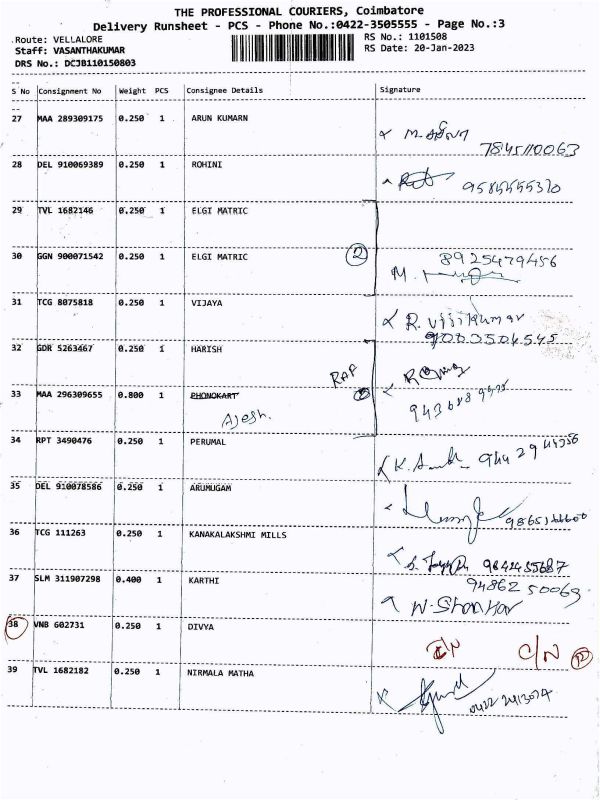 THE PROFESSIONAL COURIERS, Coimbatore
Delivery Runsheet - PCS - Phone No.:0422-3505555 - Page No.:3
Route: VELLALORE
RS No.: 1101508
Staff: VASANTHAKUMAR
RS Date: 20-Jan-2023
DRS No.: DCJB110150803
S No Consignment No Weight PCS Consignee Details Signature
27 MAA 289309175 0.250 1 ARUN KUMARN
7845110063
28 DEL 910069389 0.250 1 ROHINI
29 TVL 1682146 0.250 1 ELGI MATRIC
30 GGN 900071542 0.250 1 ELGI MATRIC 2 8925479456
M.
31 TCG 8075818 0.250 1 VIJAYA
R. Vijikumar
32 GDR 5263467 0.250 1 HARISH
RAP
33 MAA 296309655 0.800 1 PHONOKART
Ajesh.
34 RPT 3490476 0.250 1 PERUMAL
K.
35 DEL 910078586 0.250 1 ARUMUGAM
36 TCG 111263 0.250 1 KANAKALAKSHMI MILLS
9842455687
37 SLM 311907298 0.400 1 KARTHI
W. Shankar
38 VNB 602731 0.250 1 DIVYA
C/N
39 TVL 1682182 0.250 1 NIRMALA MATHA